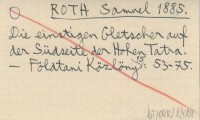 ROTH Samuel 1885.
Die einstigen Gletscher auf
der Südseite der Hohen Tatra.
— Földtani Közlöny 15: 53-75.